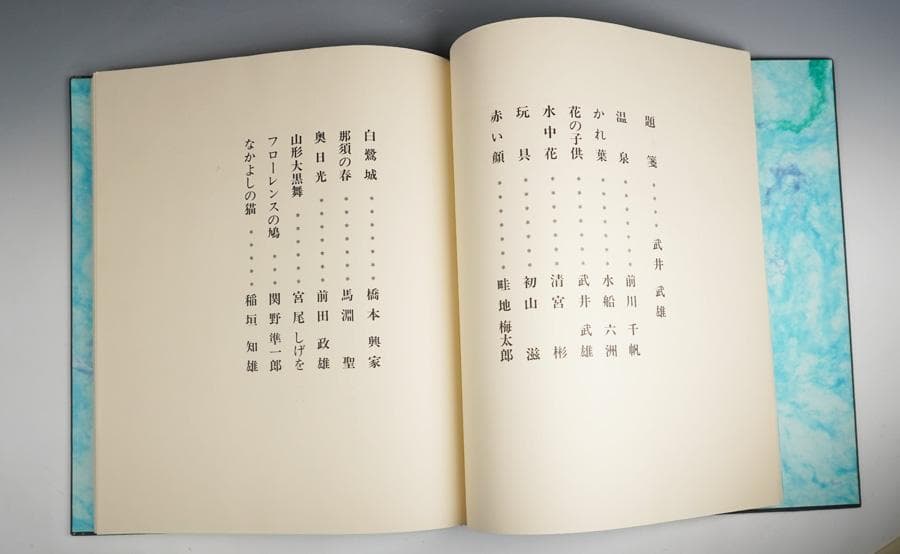 題箋・・・・武井武雄
温泉・・・・・・・前川千帆
かれ葉・・・・・・・水船六洲
花の子供・・・・・・・武井武雄
水中花・・・・・・・清宮彬
玩具・・・・・・・初山滋
赤い顔・・・・・・・畦地梅太郎
白鷺城・・・・・・・橋本興家
那須の春・・・・・・・馬淵聖
奥日光・・・・・・・前田政雄
山形大黒舞・・・・・・宮尾しげを
フローレンスの鳩・・・関野準一郎
なかよしの猫・・・・・・稲垣知雄